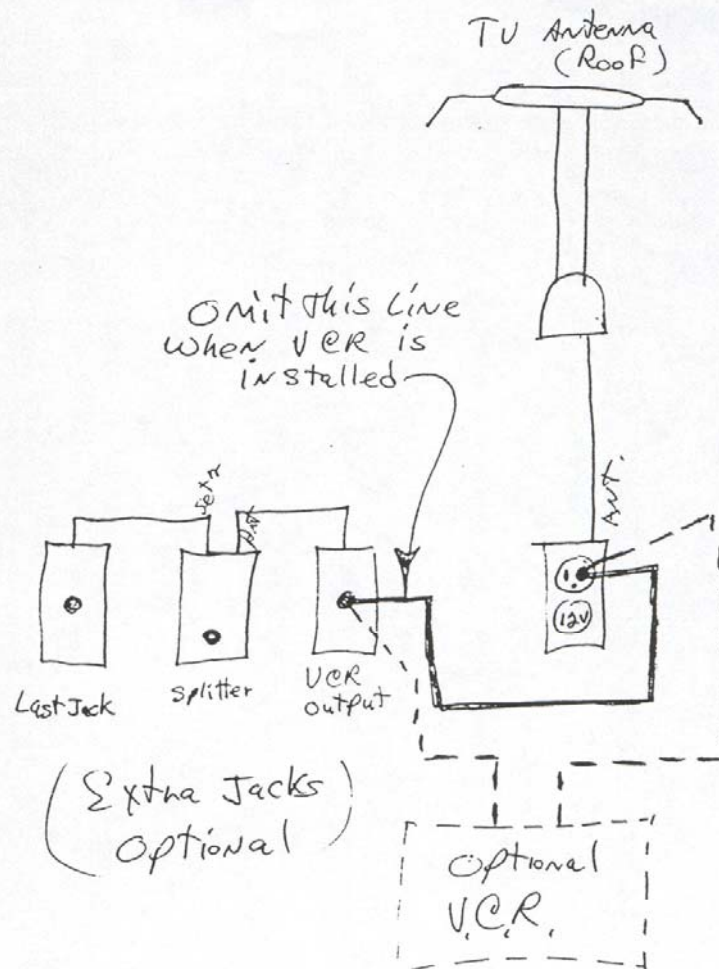 TV Antenna
(Roof)
Omit this Line
when VCR is
installed
Set 2
ANT.
ANT.
12V
Last Jack
Splitter
VCR
output
(Extra Jacks
Optional)
Optional
V.C.R.